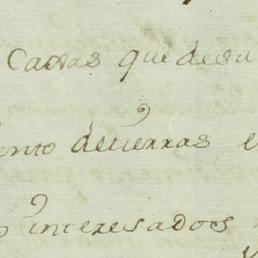 Cartas que desu
ento detierras
interesados